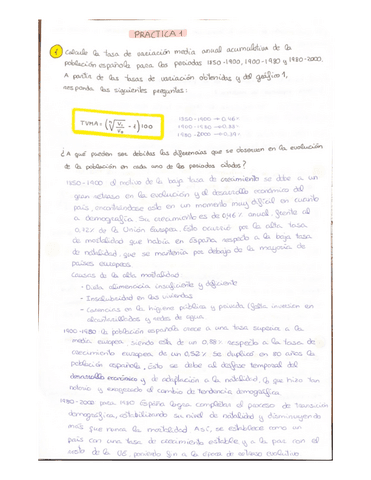 PRACTICA 1
1 Calcule la tasa de variación media anual acumulativa de la
población española para los periodos 1850-1900, 1900-1980 y 1980-2000.
A partir de las tasas de variación obtenidas y del gráfico 1,
responda las siguientes preguntas:
1850-1900 → 0,46%
TVMA = ( - 1) 100
1900-1980 → 0,88%
1980-2000 →
¿A qué pueden ser debidas las diferencias que se observan en la evolución
de la población en cada uno de los periodos citados?
1850-1900 el motivo de la baja tasa de crecimiento se debe a un
gran retraso en la evolución y el desarrollo económico del
país, encontrándose este en un momento muy difícil en cuanto
a demografía. Su crecimiento es de 0,46% anual frente al
de la Unión Europea. Esto ocurrió por la alta tasa
de mortalidad que había en España respecto a la baja tasa
de natalidad, que se mantenía por debajo de la mayoría de
países europeos.
Causas de la alta mortalidad:
· Dieta alimenticia insuficiente y deficiente
· Insalubridad en las viviendas
· Carencias en la higiene pública y privada (falta inversión en
alcantarillados y redes de agua
1900-1980 la población española crece a una tasa superior a la
media europea, siendo esta de un 0,88% respecto a la tasa de
crecimiento europea de un 0,52%. Se duplicó en 80 años la
población española, esto se debe al desfase temporal del
desarrollo económico y de adaptación a la natalidad, que hizo tan
notorio y exagerado el cambio de tendencia demográfica.
1980-2000 para 1980 España logra completar el proceso de transición
demográfica, estabilizando su nivel de natalidad y disminuyendo
más que nunca la mortalidad. Así, se establece como un
país con una tasa de crecimiento estable y a la par con el
resto de la UE, poniendo fin a la época de retraso evolutivo